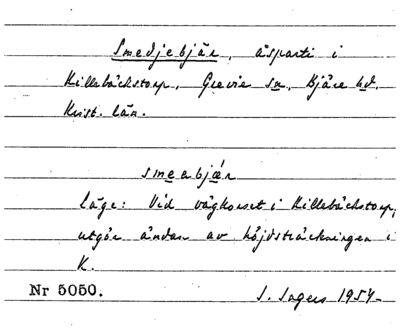 Smedjebjär, åsparti i
Killebäckstorp, Grevie sn, Bjäre hd.
Krist. län.
smeabjær
läge: Vid vägkorset i Killebäckstorp,
utgör ändan av höjdsträckningen i
K.
Nr 5050. S. Ingers 1954